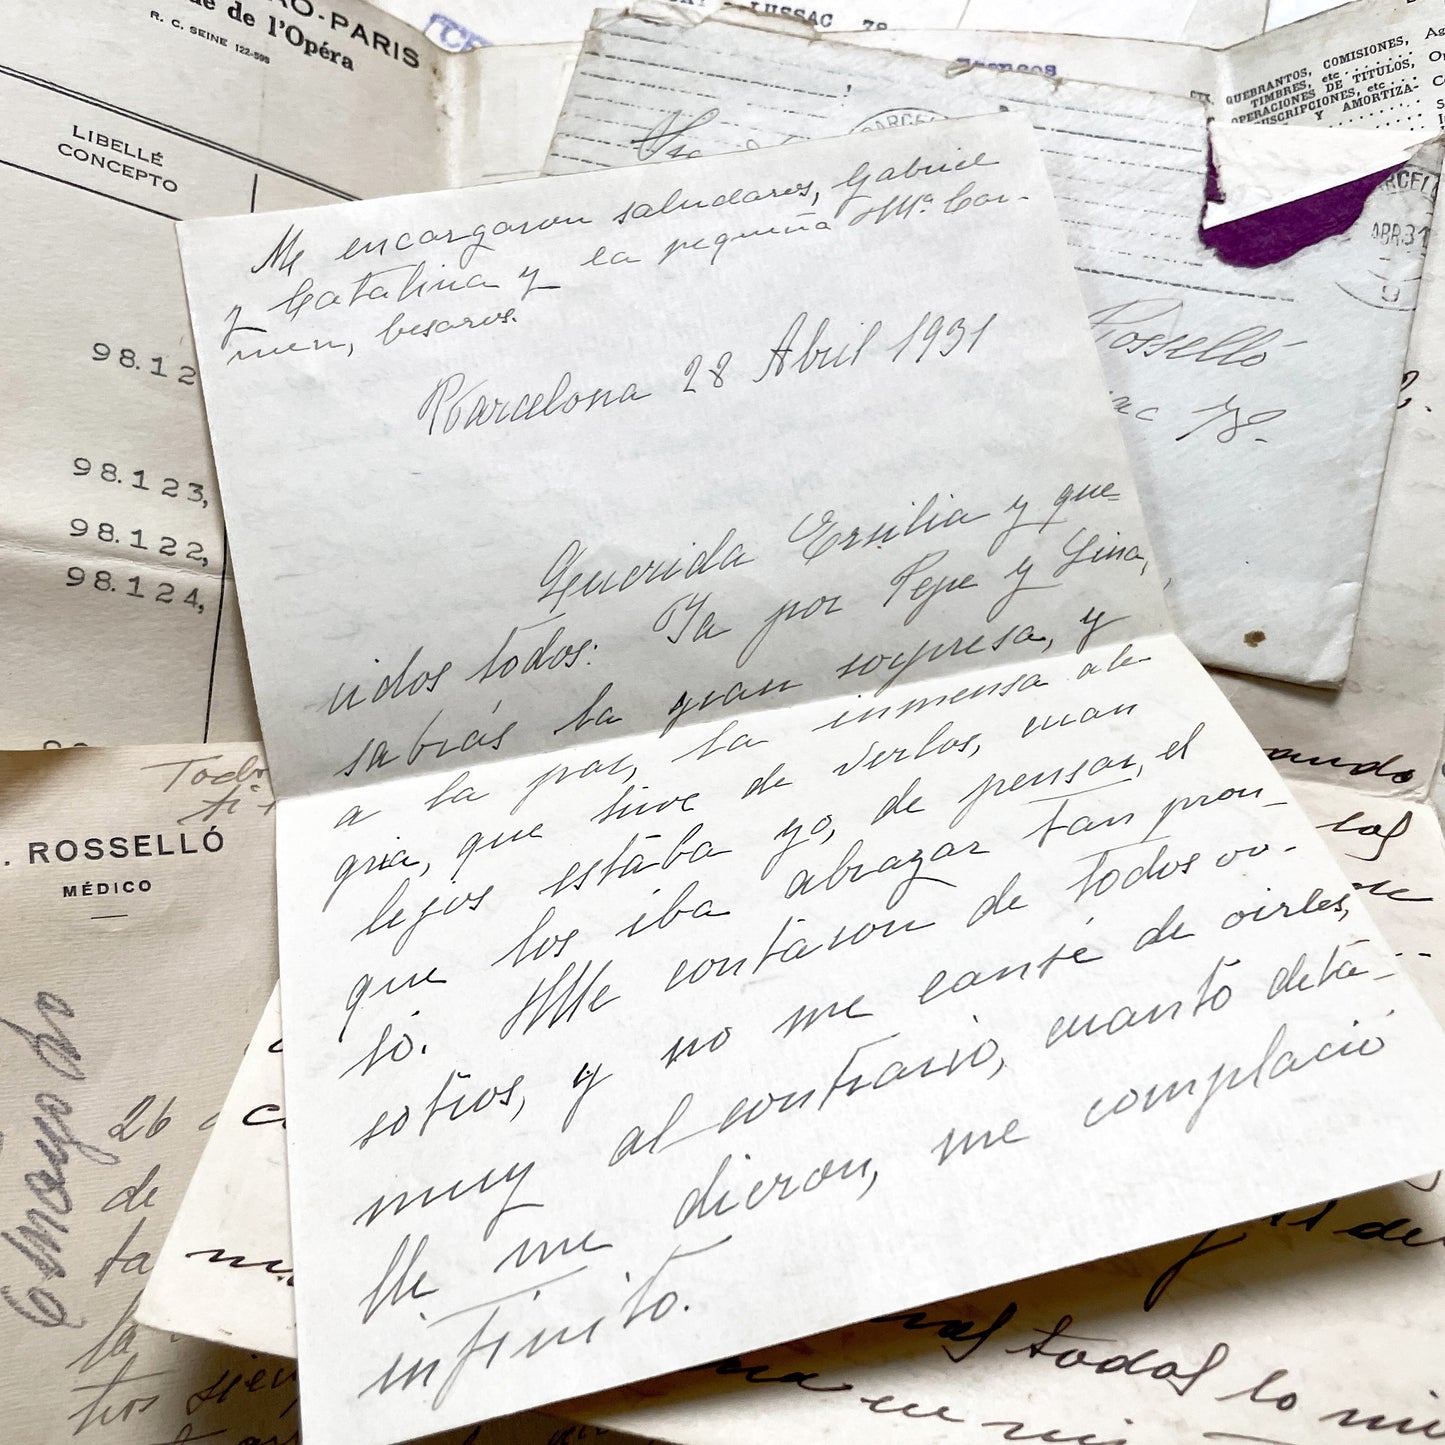 O-PARIS
de l'Opéra
R. C. SEINE 122-595
LIBELLÉ
CONCEPTO
98.12
98.123,
98.122,
98.124,
LUSSAC 78
QUEBRANTOS, COMISIONES,
TIMBRES, etc
OPERACIONES DE TITULOS,
SUSCRIPCIONES, etc
Y AMORTIZA-
BARCEL
BARCEL
ABR 31
9
Rosselló
Me encargaron saludaros, Gabriel
y Catalina y la pequeña Mª. Car-
men, besaros.
Barcelona 28 Abril 1931
Querida Ersilia y que-
ridos todos: Ya por Pepe y Lina,
sabrás la gran sorpresa, y
a la par, la inmensa ale-
gria, que tuve de verlos, cuan
lejos estaba yo, de pensar, el
que los iba abrazar tan pron-
to. Me contaron de todos vo-
sotros, y no me cansé de oirles,
muy al contrario, cuanto deta-
lle me dieron, me complació
infinito.
. ROSSELLÓ
MÉDICO
26
de
ta
la
todos lo
en mi